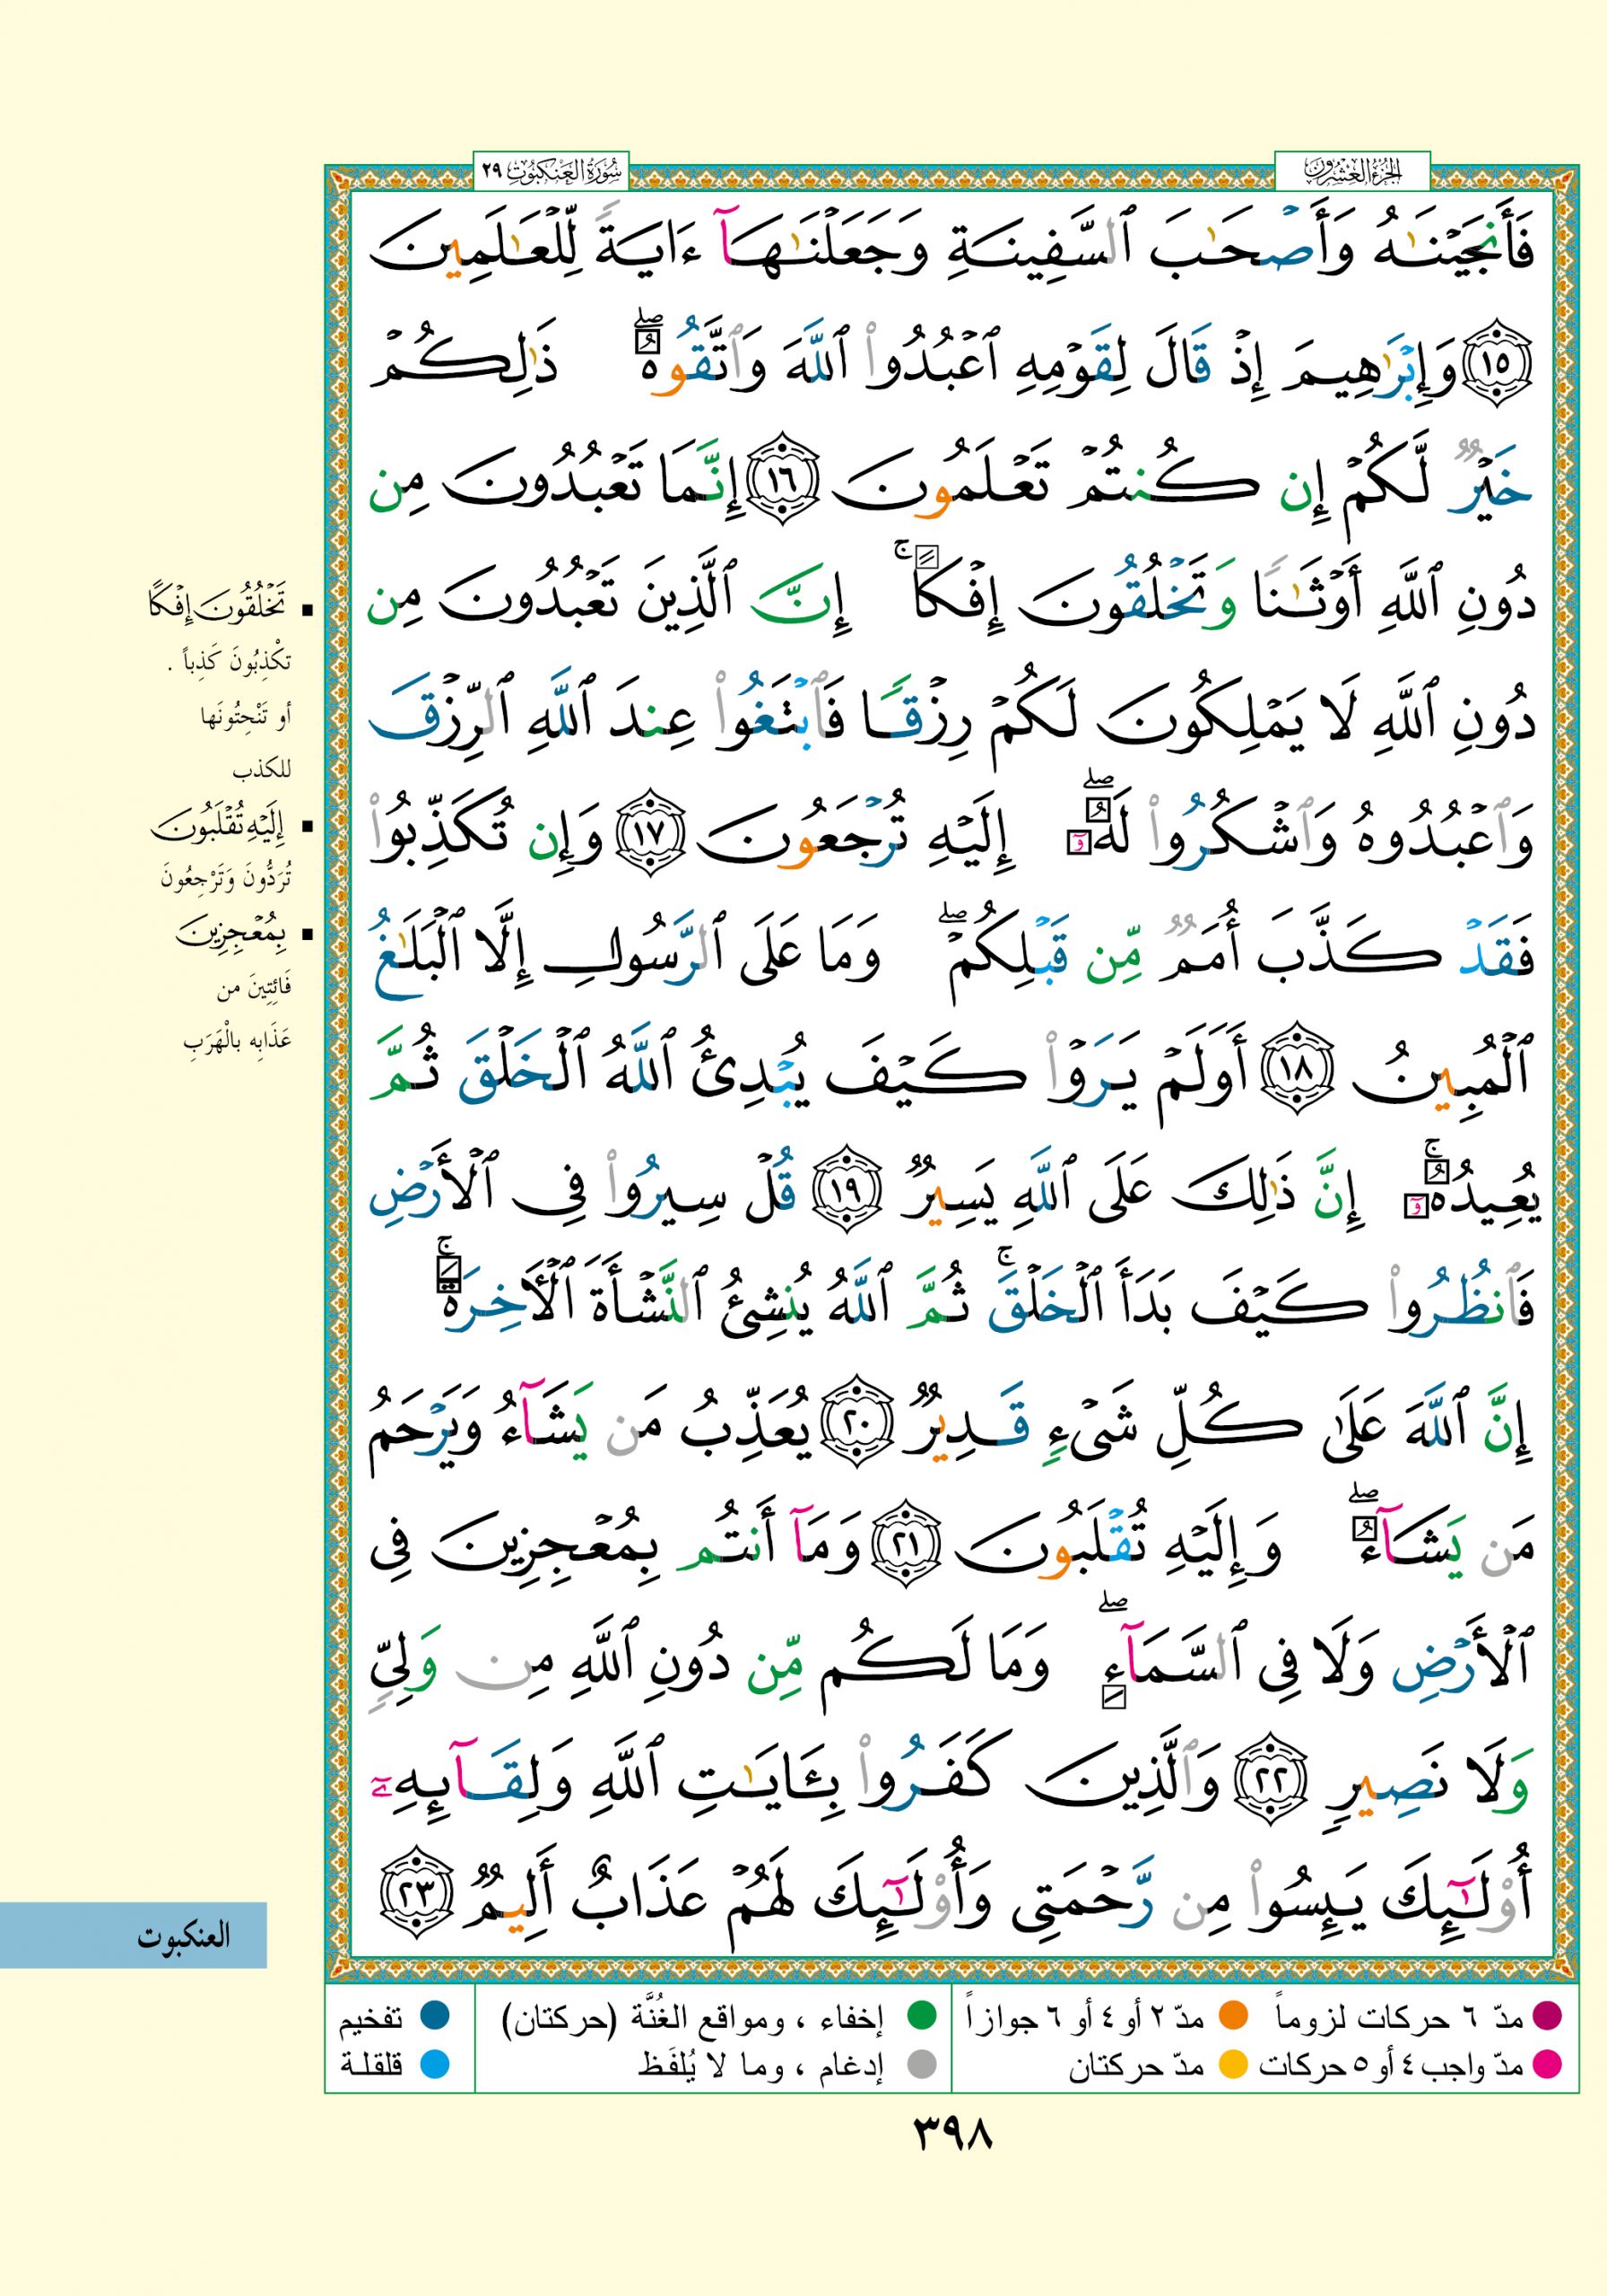 الجزء العشرون
سورة العنكبوت ٢٩
فَأَنجَيْنَٰهُ وَأَصْحَٰبَ ٱلسَّفِينَةِ وَجَعَلْنَٰهَآ ءَايَةً لِّلْعَٰلَمِينَ
١٥ وَإِبْرَٰهِيمَ إِذْ قَالَ لِقَوْمِهِ ٱعْبُدُوا۟ ٱللَّهَ وَٱتَّقُوهُ ۖ ذَٰلِكُمْ
خَيْرٌ لَّكُمْ إِن كُنتُمْ تَعْلَمُونَ ١٦ إِنَّمَا تَعْبُدُونَ مِن
دُونِ ٱللَّهِ أَوْثَٰنًا وَتَخْلُقُونَ إِفْكًا ۚ إِنَّ ٱلَّذِينَ تَعْبُدُونَ مِن
دُونِ ٱللَّهِ لَا يَمْلِكُونَ لَكُمْ رِزْقًا فَٱبْتَغُوا۟ عِندَ ٱللَّهِ ٱلرِّزْقَ
وَٱعْبُدُوهُ وَٱشْكُرُوا۟ لَهُۥٓ ۖ إِلَيْهِ تُرْجَعُونَ ١٧ وَإِن تُكَذِّبُوا۟
فَقَدْ كَذَّبَ أُمَمٌ مِّن قَبْلِكُمْ ۖ وَمَا عَلَى ٱلرَّسُولِ إِلَّا ٱلْبَلَٰغُ
ٱلْمُبِينُ ١٨ أَوَلَمْ يَرَوْا۟ كَيْفَ يُبْدِئُ ٱللَّهُ ٱلْخَلْقَ ثُمَّ
يُعِيدُهُۥٓ ۚ إِنَّ ذَٰلِكَ عَلَى ٱللَّهِ يَسِيرٌ ١٩ قُلْ سِيرُوا۟ فِى ٱلْأَرْضِ
فَٱنظُرُوا۟ كَيْفَ بَدَأَ ٱلْخَلْقَ ۚ ثُمَّ ٱللَّهُ يُنشِئُ ٱلنَّشْأَةَ ٱلْءَاخِرَةَ ۚ
إِنَّ ٱللَّهَ عَلَىٰ كُلِّ شَىْءٍ قَدِيرٌ ٢٠ يُعَذِّبُ مَن يَشَآءُ وَيَرْحَمُ
مَن يَشَآءُ ۖ وَإِلَيْهِ تُقْلَبُونَ ٢١ وَمَآ أَنتُم بِمُعْجِزِينَ فِى
ٱلْأَرْضِ وَلَا فِى ٱلسَّمَآءِ ۖ وَمَا لَكُم مِّن دُونِ ٱللَّهِ مِن وَلِىٍّ
وَلَا نَصِيرٍ ٢٢ وَٱلَّذِينَ كَفَرُوا۟ بِـَٔايَٰتِ ٱللَّهِ وَلِقَآئِهِۦٓ
أُو۟لَٰٓئِكَ يَئِسُوا۟ مِن رَّحْمَتِى وَأُو۟لَٰٓئِكَ لَهُمْ عَذَابٌ أَلِيمٌ ٢٣
تَخْلُقُونَ إِفْكًا
تكْذِبُونَ كَذِباً .
أو تَنْحِتُونَها
للكذب
إِلَيْهِ تُقْلَبُونَ
تُرَدُّونَ وَتَرْجِعُونَ
بِمُعْجِزِينَ
فَائِتِينَ من
عَذَابِه بالْهَرَبِ
العنكبوت
مدّ ٦ حركات لزوماً مدّ ٢ أو ٤ أو ٦ جوازاً إخفاء ، ومواقع الغُنَّة (حركتان) تفخيم
مدّ واجب ٤ أو ٥ حركات مدّ حركتان إدغام ، وما لا يُلفَظ قلقلة
٣٩٨